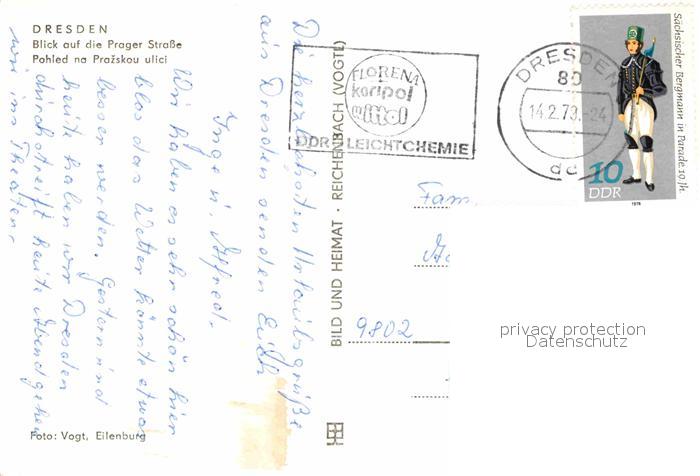 DRESDEN
Blick auf die Prager Straße
Pohled na Pražskou ulici
Die herzlichsten Urlaubsgrüße
aus Dresden senden Euch
Inge u. Alfred.
Wir haben es sehr schön hier
blos das Wetter könnte etwas
besser werden. Gestern und
heute haben wir Dresden
durchstreift heute Abend gehen
wir ins Theater.
Foto: Vogt, Eilenburg
BILD UND HEIMAT · REICHENBACH (VOGTL)
FLORENA
karipol
wittol
DDR LEICHTCHEMIE
DRESDEN
80
14.2.79.-24
dd
Sächsischer Bergmann in Parade. 19. Jh.
10
DDR
1978
Fam.
9802
privacy protection
Datenschutz